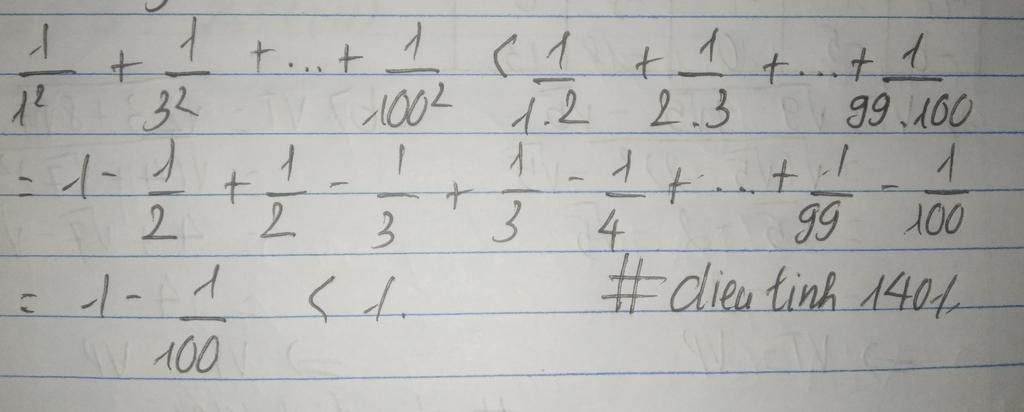 1/1² + 1/3² + ... + 1/100² < 1/1.2 + 1/2.3 + ... + 1/99.100
= 1 - 1/2 + 1/2 - 1/3 + 1/3 - 1/4 + ... + 1/99 - 1/100
= 1 - 1/100 < 1. # dieu tinh 1401